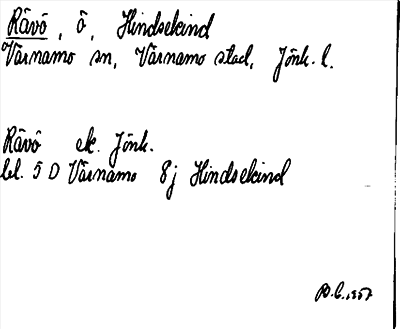 Rävö, ö, Hindsekind
Värnamo sn, Värnamo stad, Jönk. l.
Rävö ek. Jönk.
bl. 5 D Värnamo 8j Hindsekind
1957